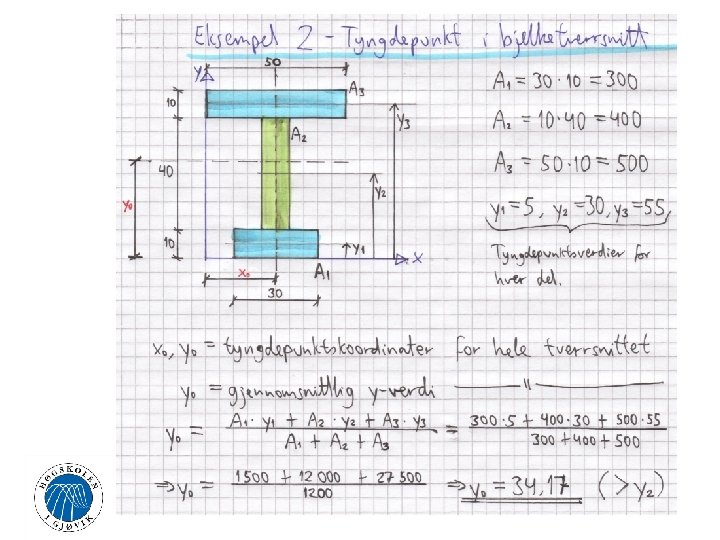 Eksempel 2 - Tyngdepunkt i bjelketverrsnitt
y
50
A3
10
A2
y3
40
y0
y2
10
y1
x
x0
A1
30
A1 = 30 · 10 = 300
A2 = 10 · 40 = 400
A3 = 50 · 10 = 500
y1 = 5, y2 = 30, y3 = 55,
Tyngdepunktsverdier for
hver del.
x0, y0 = tyngdepunktskoordinater for hele tverrsnittet
y0 = gjennomsnittlig y-verdi —— " ——
y0 = A1 · y1 + A2 · y2 + A3 · y3 / A1 + A2 + A3 = 300 · 5 + 400 · 30 + 500 · 55 / 300 + 400 + 500
⇒ y0 = 1500 + 12 000 + 27 500 / 1200 ⇒ y0 = 34,17 (> y2)
HØGSKOLEN
I GJØVIK